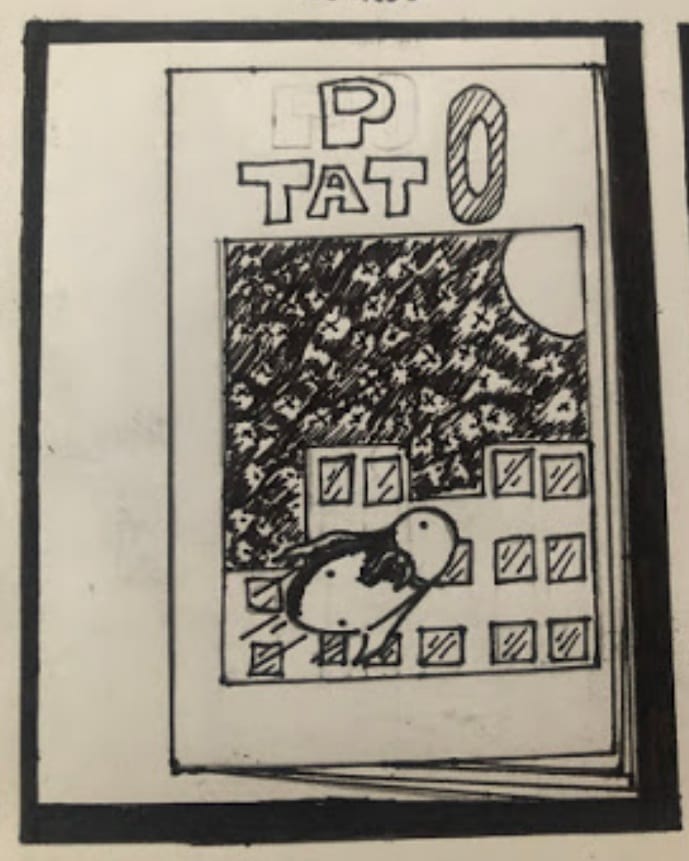 P
TATO